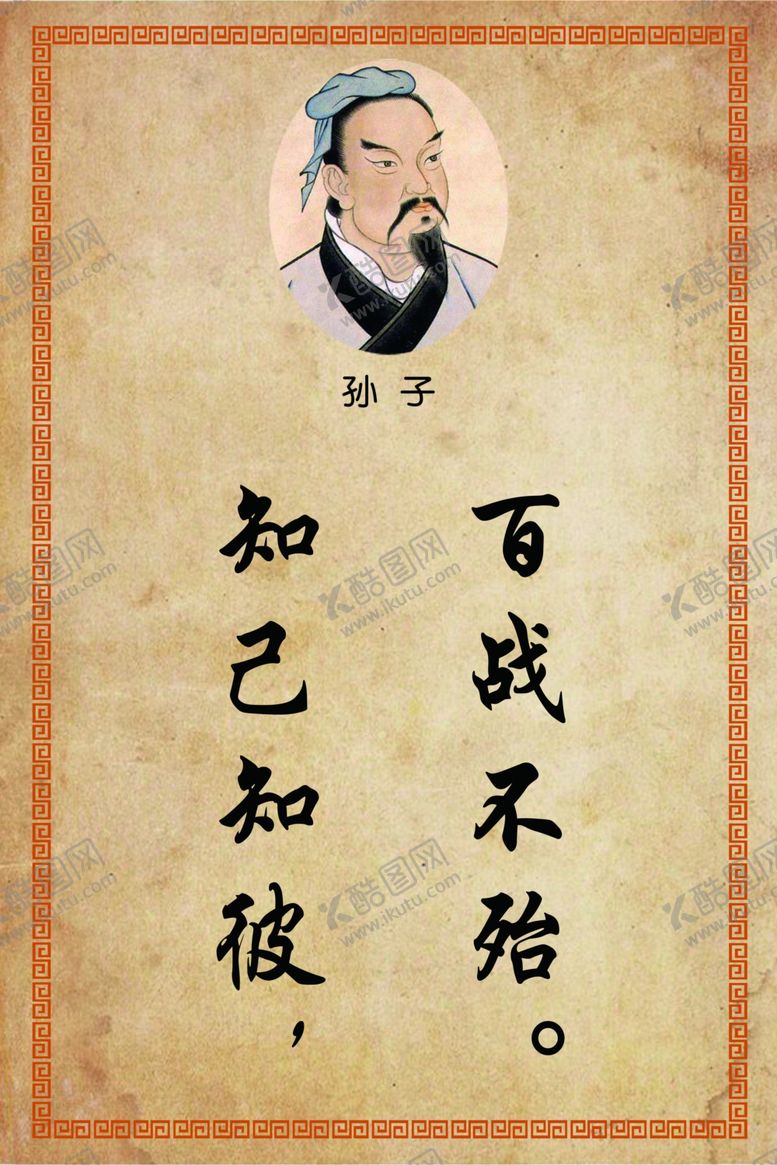 孙子
知己知彼，
百战不殆。
酷图网
www.ikutu.com